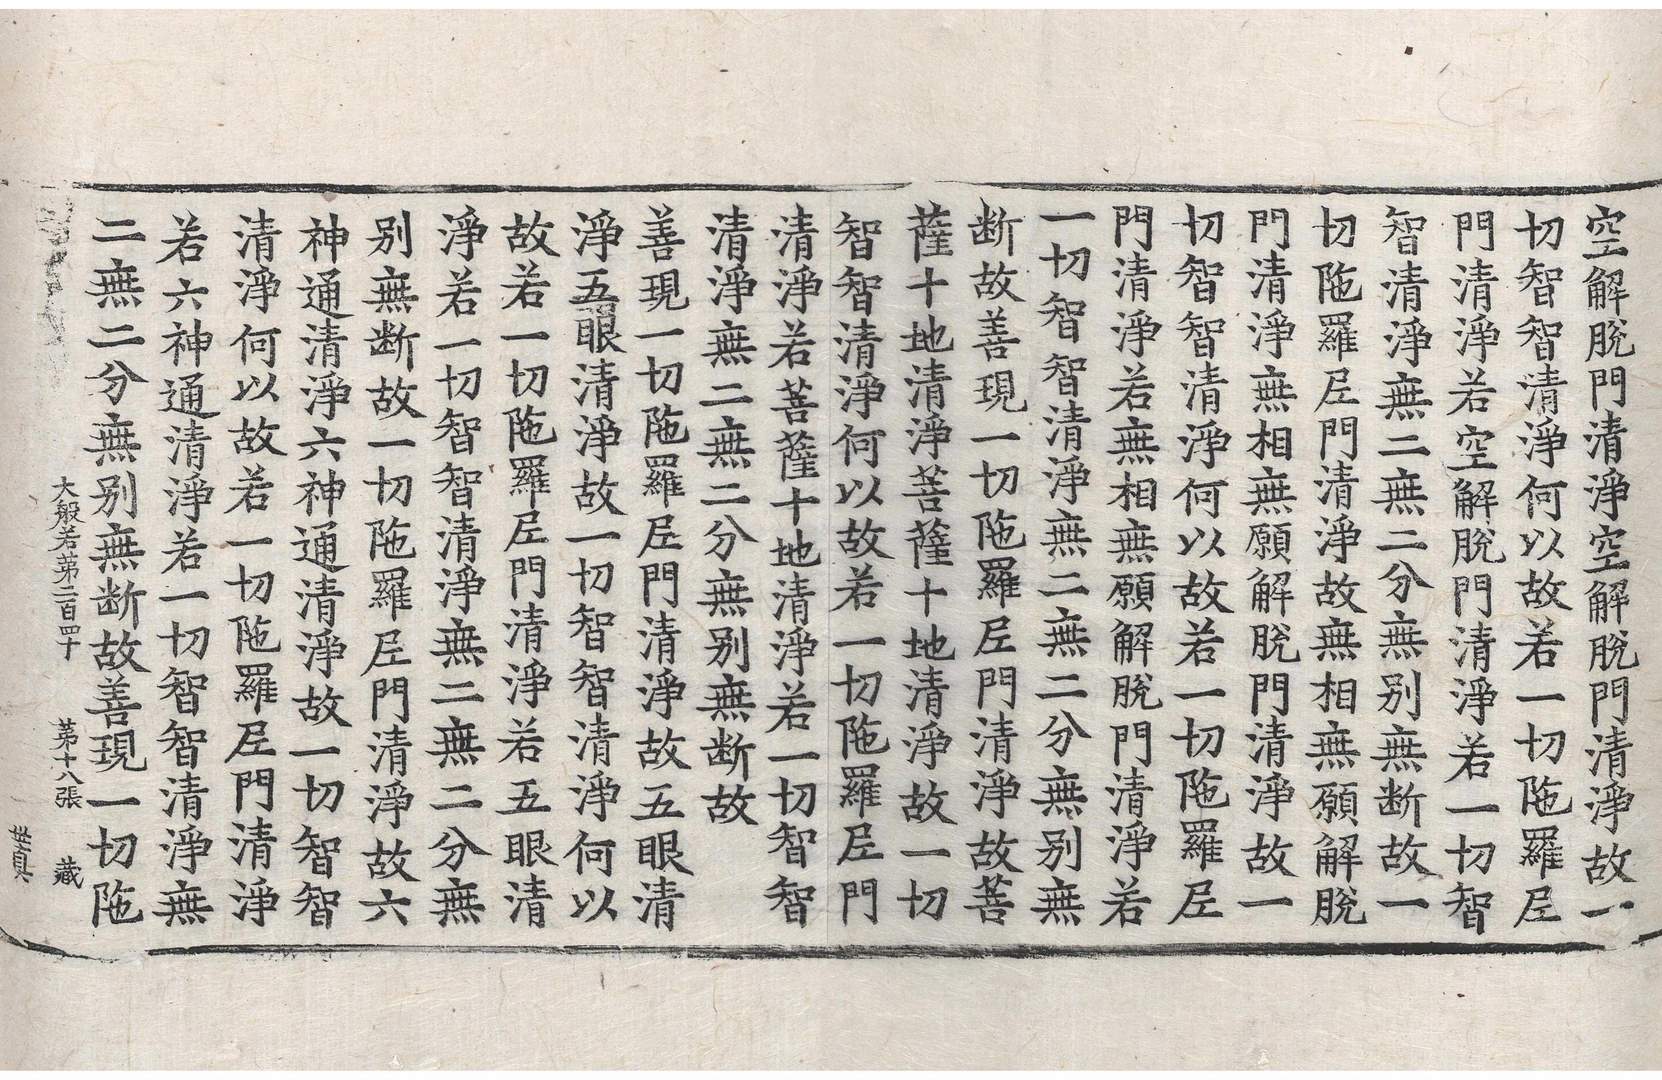 空解脫門清淨空解脫門清淨故一
切智智清淨何以故若一切陁羅尼
門清淨若空解脫門清淨若一切智
智清淨無二無二分無别無断故一
切陁羅尼門清淨故無相無願解脫
門清淨無相無願解脫門清淨故一
切智智清淨何以故若一切陁羅尼
門清淨若無相無願解脫門清淨若
一切智智清淨無二無二分無别無
断故善現一切陁羅尼門清淨故菩
薩十地清淨菩薩十地清淨故一切
智智清淨何以故若一切陁羅尼門
清淨若菩薩十地清淨若一切智智
清淨無二無二分無别無断故
善現一切陁羅尼門清淨故五眼清
淨五眼清淨故一切智智清淨何以
故若一切陁羅尼門清淨若五眼清
淨若一切智智清淨無二無二分無
别無断故一切陁羅尼門清淨故六
神通清淨六神通清淨故一切智智
清淨何以故若一切陁羅尼門清淨
若六神通清淨若一切智智清淨無
二無二分無别無断故善現一切陁
大般若第二百四十 第十八張 藏
世真